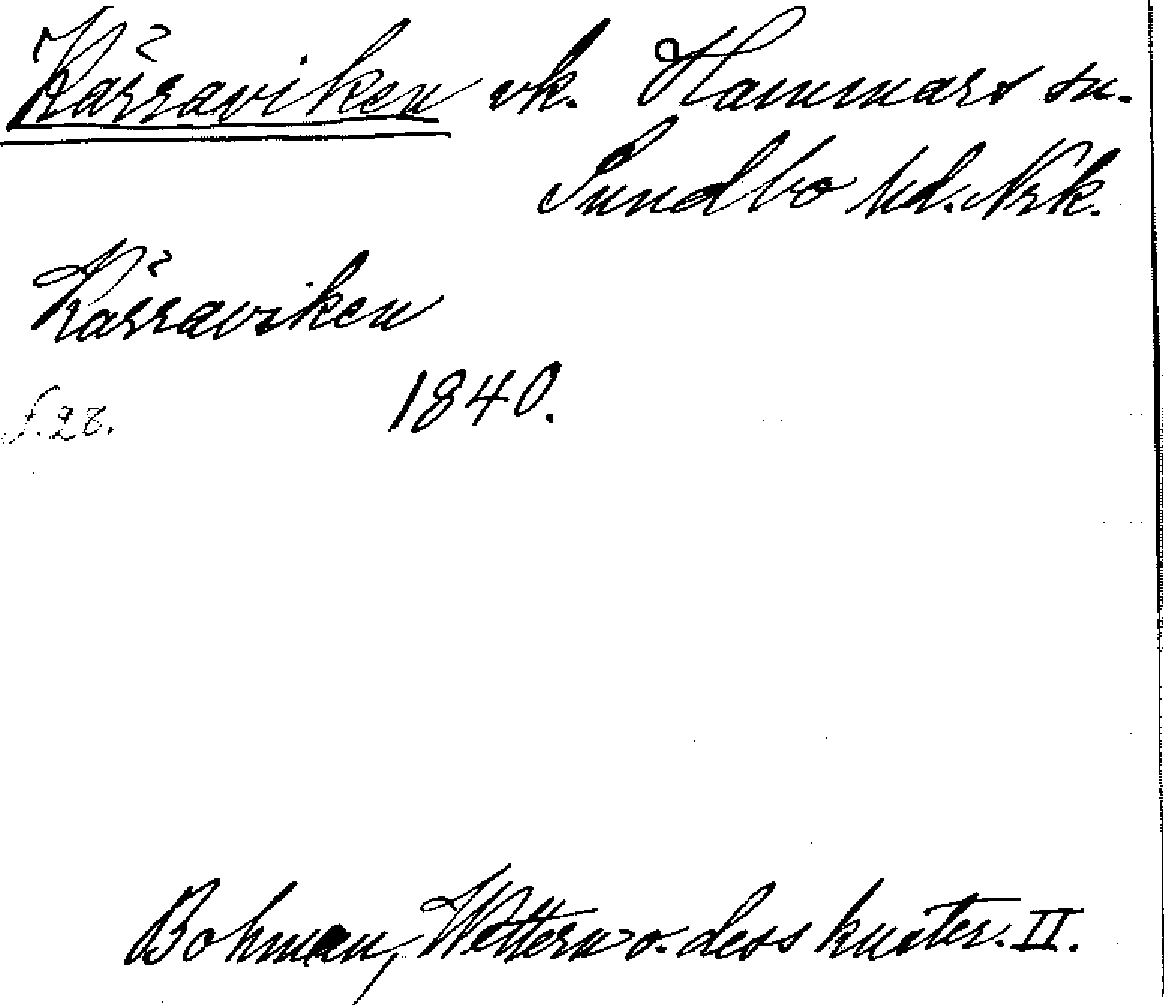 Kärraviken vk. Hammars sn.
Sundbo hd. Nrk.
Kärraviken
1840.
s. 28.
Bohman, Wettern o. dess kuster. II.